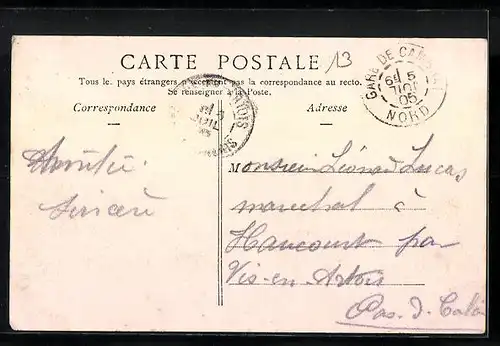 CARTE POSTALE
13
Tous les pays étrangers n'acceptent pas la correspondance au recto.
Se renseigner à la Poste.
Correspondance
Adresse
GARE DE CAMBRAI
6 5
05
NORD
Amitié
sincère
Monsieur Léonard Lucas
marechal à
Haucourt par
Vis-en-Artois
Pas-d. Calais